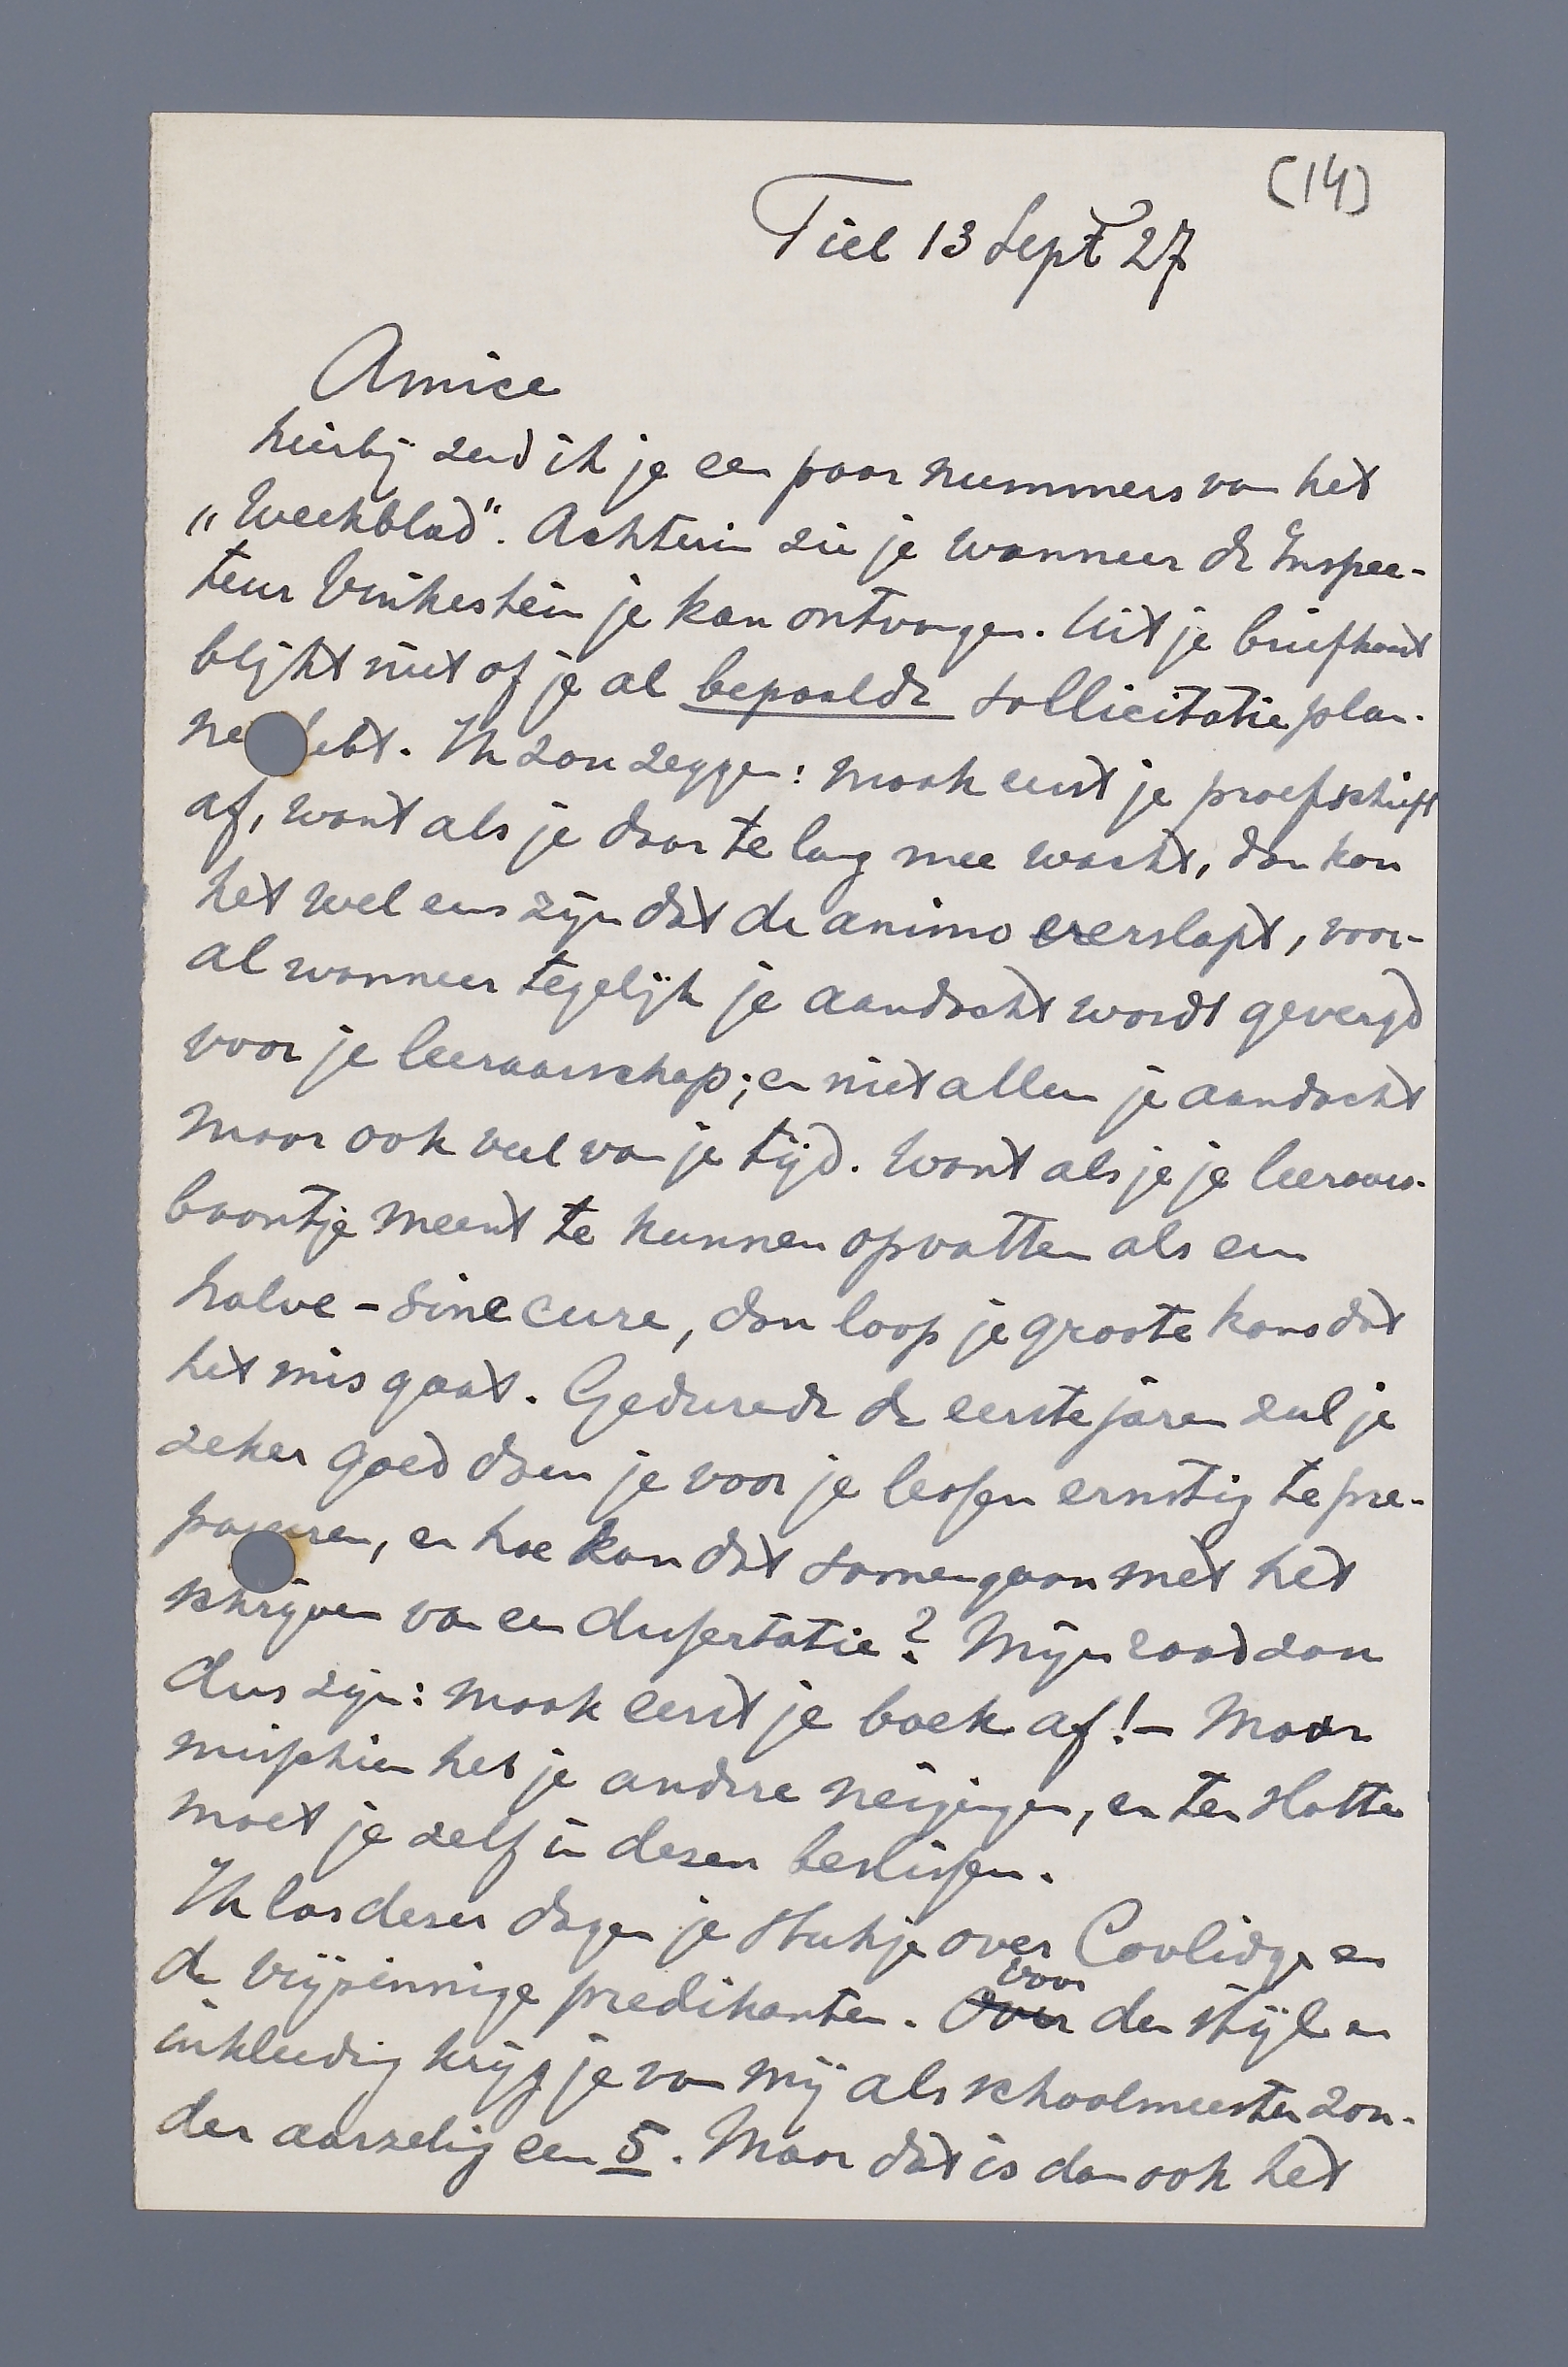 (14)
Tiel 13 Sept 27
Amice
hierbij zend ik je een paar nummers van het
„Weekblad". Achterin zie je wanneer de Inspec-
teur Vinkestein je kan ontvangen. Uit je briefkaart
blijkt niet of je al bepaalde sollicitatieplan-
ne hebt. Ik zou zeggen: maak eerst je proefschrift
af, want als je daar te lang mee wacht, dan kan
het wel eens zijn dat de animo verslapt, voor-
al wanneer tegelijk je aandacht wordt gevergd
voor je leeraarschap; en niet alleen je aandacht
maar ook veel van je tijd. Want als je je leeraars-
baantje meent te kunnen opvatten als een
halve-sinecure, dan loop je groote kans dat
het mis gaat. Gedurende de eerste jaren zul je
zeker goed doen je voor je lessen ernstig te pre-
pareren, en hoe kan dat samengaan met het
schrijven van een dissertatie? Mijn raad zou
dus zijn: maak eerst je boek af! – Maar
misschien heb je andere neigingen, en ten slotte
moet je zelf in dezen beslissen.
Ik las dezer dagen je stukje over Coolidge en
de vrijzinnige predikanten. Over voor den stijl en
inkleeding krijg je van mij als schoolmeester zon-
der aarzeling een 5. Maar dat is dan ook het